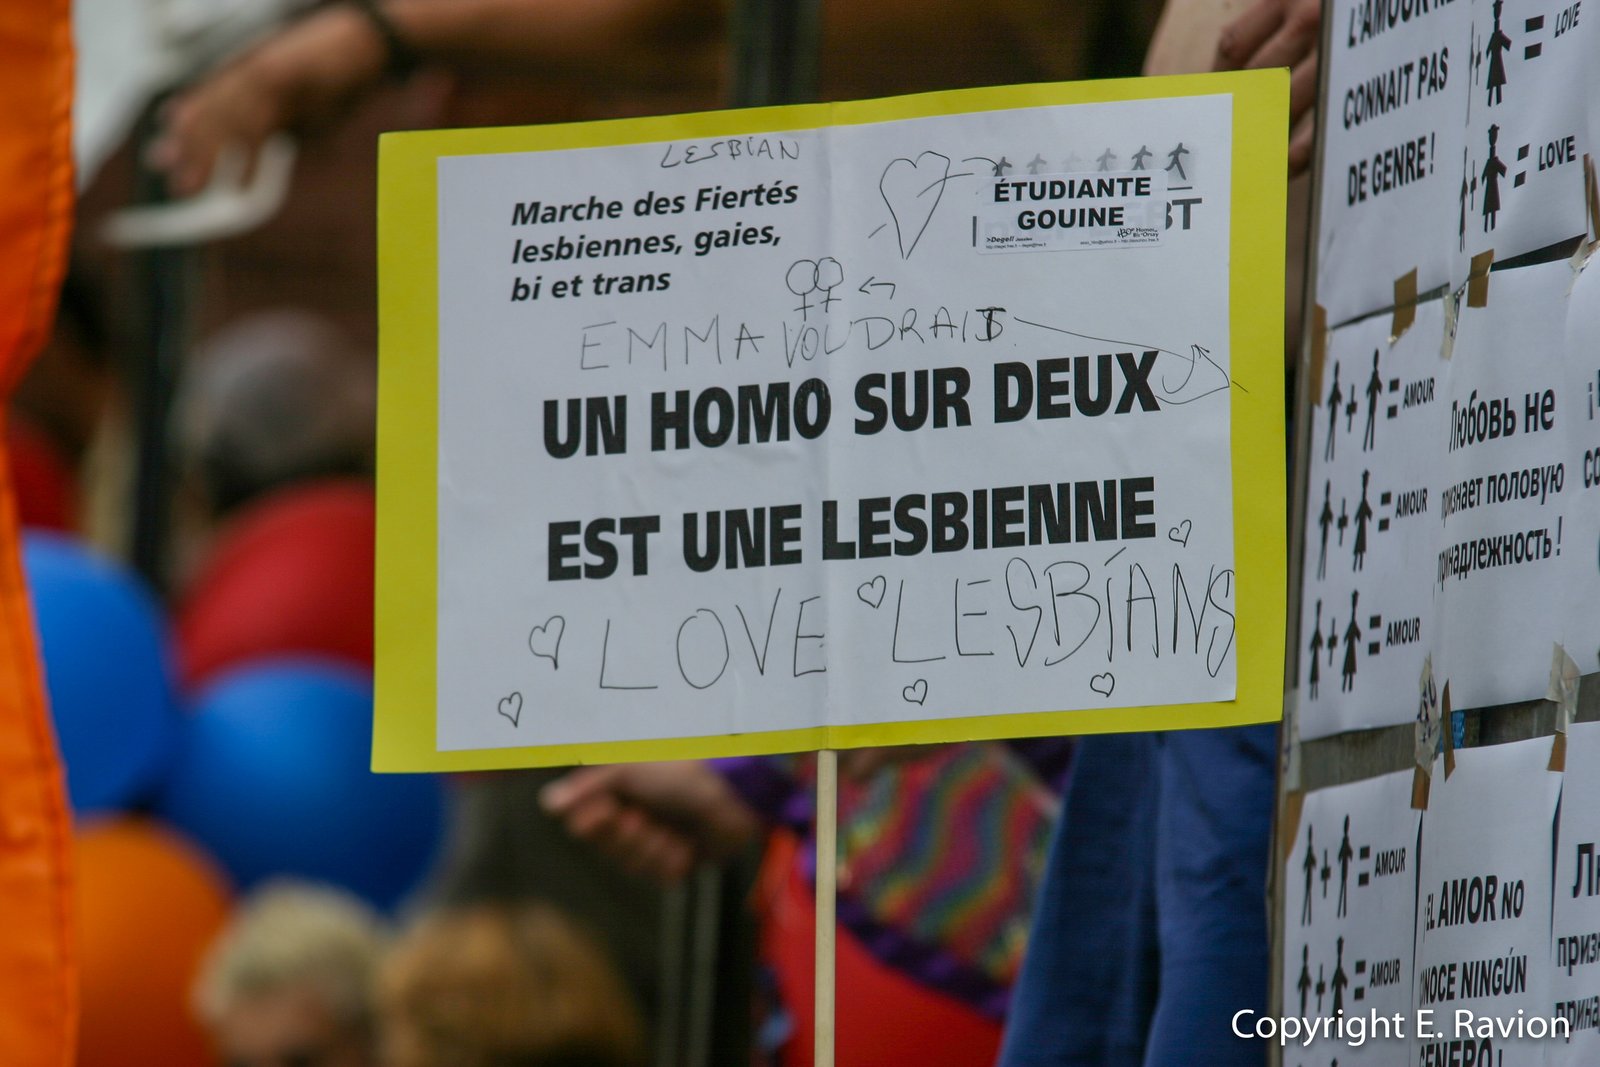 LESBIAN
Marche des Fiertés
lesbiennes, gaies,
bi et trans
ÉTUDIANTE
GOUINE
BT
>Degel!
EMMA VOUDRAIT
UN HOMO SUR DEUX
EST UNE LESBIENNE
LOVE LESBIANS
L'AMOUR NE
CONNAIT PAS
DE GENRE !
+ = LOVE
+ = LOVE
+ = AMOUR
+ = AMOUR
+ = AMOUR
Любовь не
признает половую
принадлежность !
+ = AMOUR
+ = AMOUR
¡EL AMOR NO
NOCE NINGÚN
GÉNERO !
Copyright E. Ravion